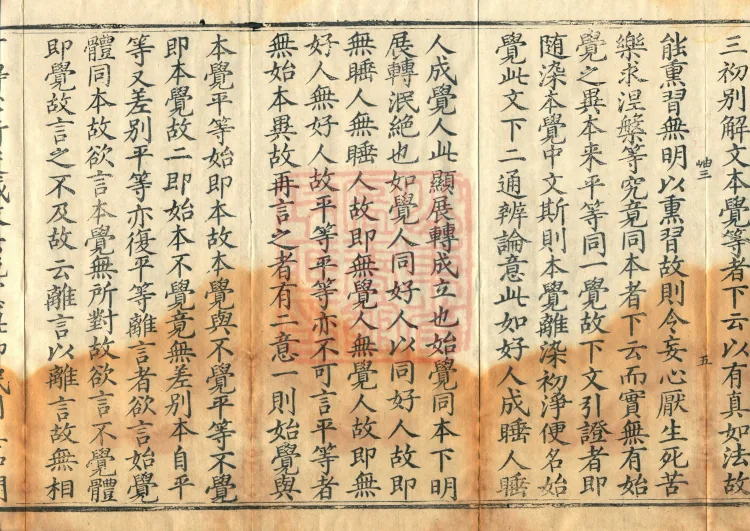 三初別解文本覺等者下云以有真如法故
岫三
五
能熏習無明以熏習故則令妄心厭生死苦
樂求涅槃等究竟同本者下云而實無有始
覺之異本来平等同一覺故下文引證者即
随染本覺中文斯則本覺離染初淨便名始
覺此文下二通辨論意此如好人成睡人睡
人成覺人此顯展轉成立也始覺同本下明
展轉泯絶也如覺人同好人以同好人故即
無睡人無睡人故即無覺人無覺人故即無
好人無好人故平等平等亦不可言平等者
無始本異故再言之者有二意一則始覺與
本覺平等始即本故本覺與不覺平等不覺
即本覺故二即始本不覺竟無差別本自平
等又差別平等亦復平等離言者欲言始覺
體同本故欲言本覺無所對故欲言不覺體
即覺故言之不及故云離言以離言故無相